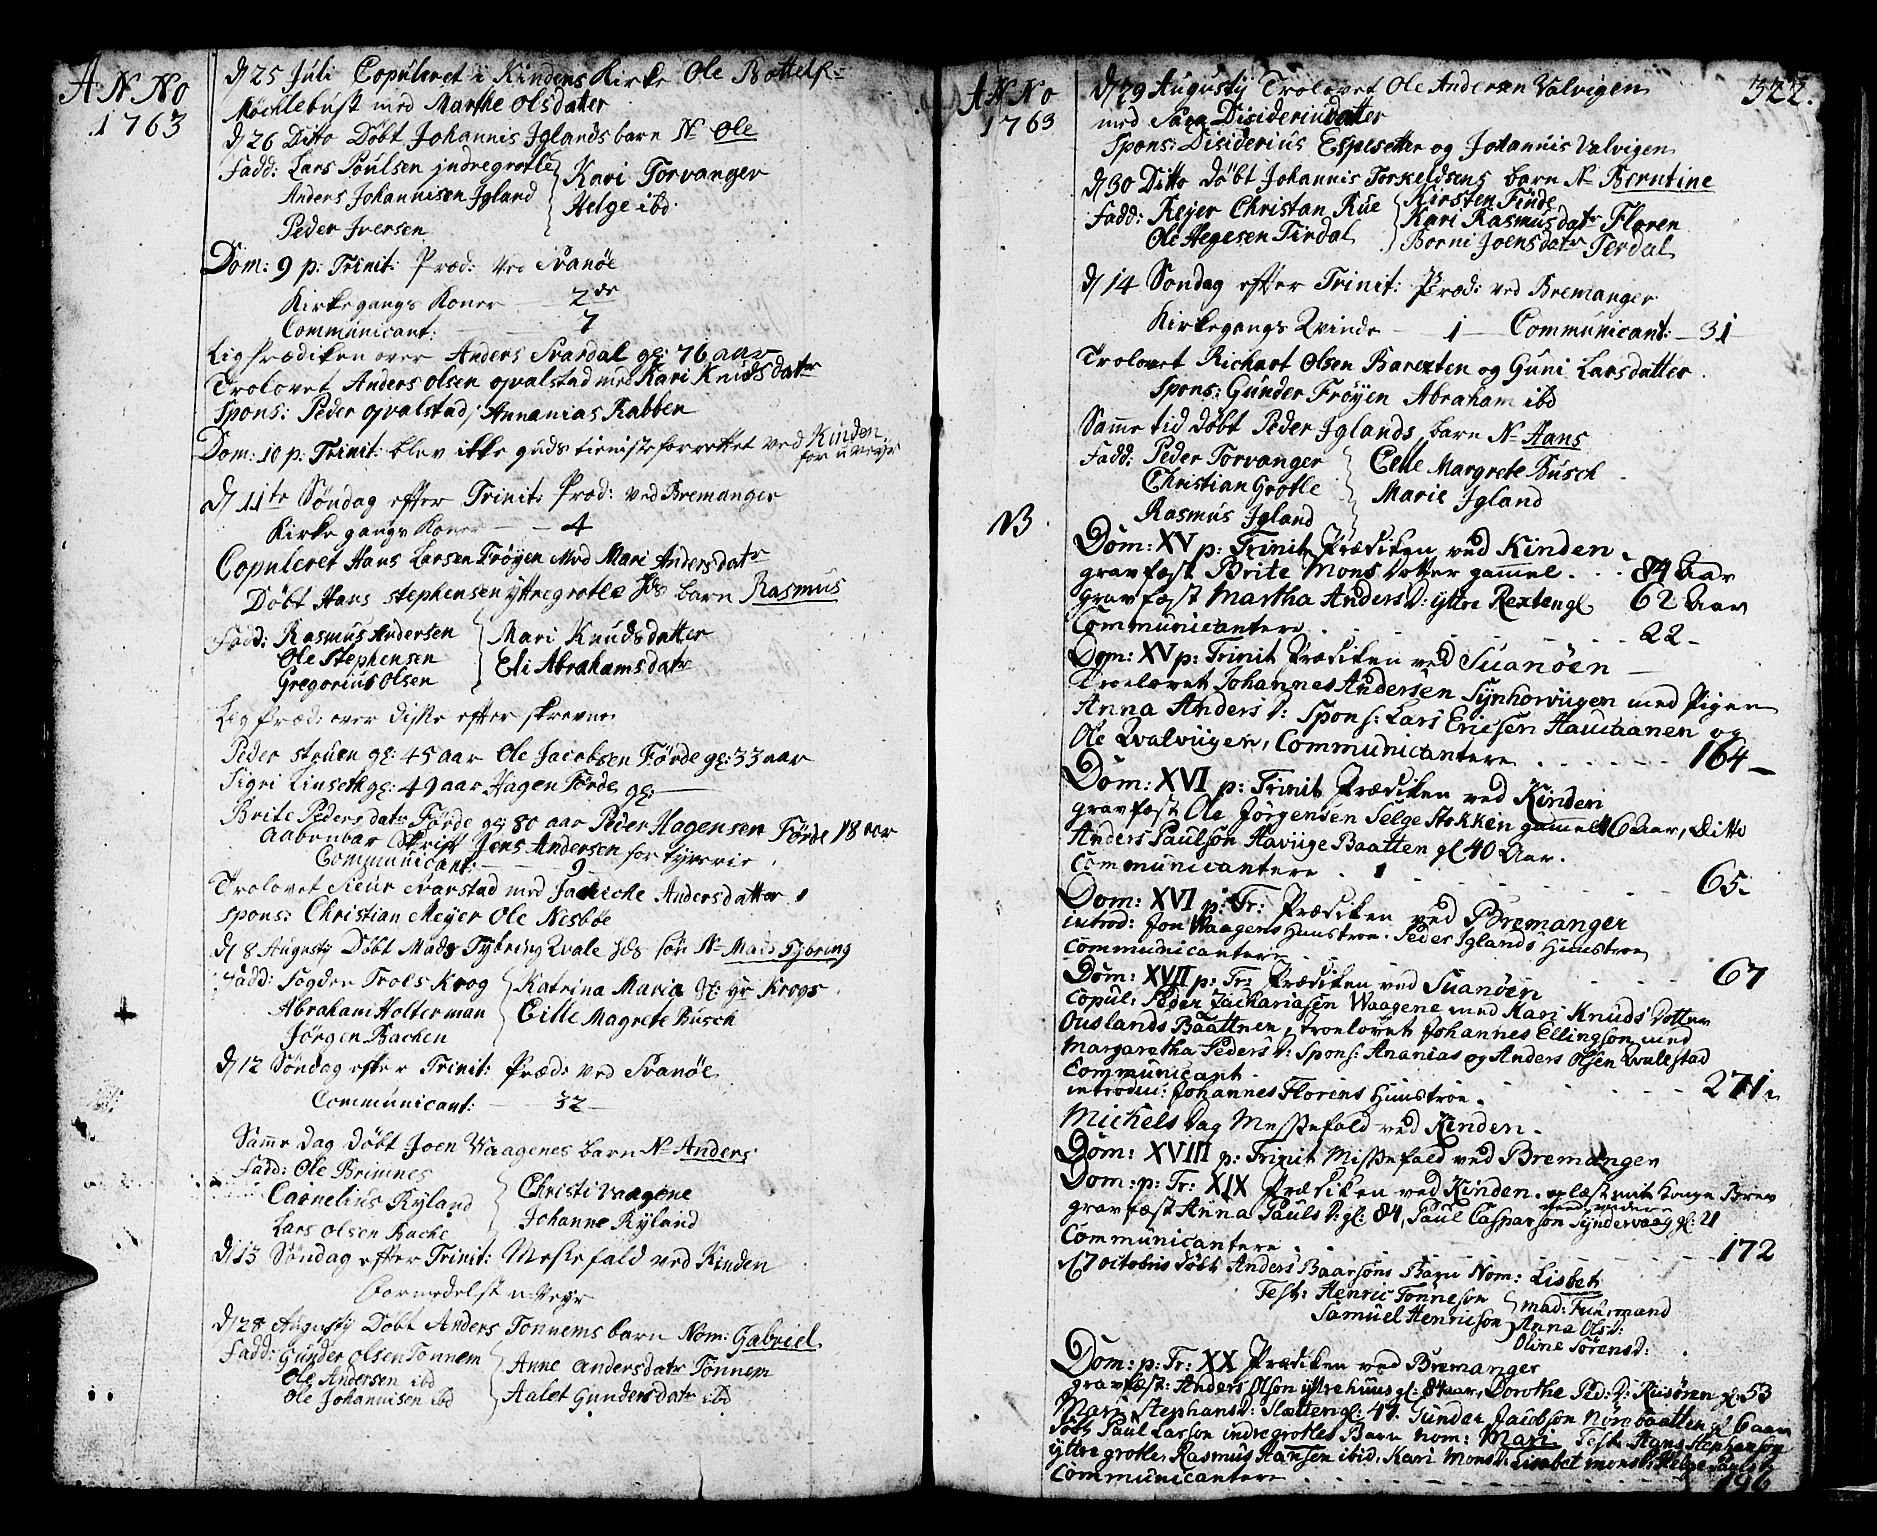 ANNo
1763
d/ 25 Juli Copuleret i Kindens Kirke Ole Bottelf:
Mochlebust med Marthe Olsdatter
d/ 26 Ditto Døbt Johannis Iglands barn N: Ole
Fadd: Lars Poulsen indregrotle Kari Torvanger
Anders Johannisen Igland Helge ibd
Peder Iversen
Dom: 9 p: Trinit: Præd: ved Svanøe
Kirkegangs Koner 2de
Communicant: 7
Lig Prædiken over Anders Svardal gl: 76 aar
Trolovet Anders Olsen qvalstad med Kari Knudsdatr
Spons: Peder qvalstad, Annanias Rabben
Dom: 10 p: Trinit: blev ikke guds tieniste forrettet ved Kinden
for uveyr
d/ 11te Søndag efter Trinit: Præd: ved Bremanger
Kirkegangs Koner 4
Copuleret Hans Larsen Frøyen Med Mari Andersdatr
Døbt Hans Stephensen yttregrotle Hds barn Rasmus
Fadd: Rasmus Andersen Mari Knudsdatter
Ole Stephensen Eli Abrahamsdatr
Gregorius Olsen
Lig Præd: over diske efter skrevne
Peder Struen gl: 45 aar Ole Jacobsen Førde gl: 33 aar
Sigri Linseth gl: 49 aar Hagen Førde gl:
Brite Pedersdatr Førde gl: 80 aar Peder Hagensen Førde 18 aar
Aabenbar Skrift Jens Andersen for tyverie
Communicant: 9
Trolovet Sieur Svarstad med Jannicke Andersdatter
Spons: Christian Meyer Ole Nesbøe
d/ 8 Augusty Døbt Mads Tybring Qvale Hds søn N: Mads Tybring
Fadd: Fogden Trols Krog Katrina Maria Krogs
Abraham Holterman Cille Magrete Busch
Jørgen Bachen
d/ 12 Søndag efter Trinit: Præd: ved Svanøe
Communicant: 32
Samme Dag Døbt Joen Waagenes barn N: Anders
Fadd: Ole Brimnes
Cornelius Ryland Christi Vaagene
Lars Olsen Bache Johanne Ryland
d/ 13 Søndag efter Trinit: Messefald ved Kinden
Formedelst uveyr
d/ 28 Augusty Døbt Anders Tonnems barn Nom: Gabriel
Fadd: Gunder Olsen Tonnem Anne Andersdatr Tonnem
Ole Andersen ibd Aalet Gundersdatr ibd
Ole Johannisen ibd
ANNo
1763
322.
d/ 29 Augusty Trolovet Ole Andersen Valvigen
med Sara Disideriidatter
Spons: Disiderius Espesetter og Johannis Valvigen
d/ 30 Ditto Døbt Johannis Torkeldsens barn N: Berntine
Fadd: Reyer Christan Rue Kirsten Finde
Ole Hegesen Tirdal Kari Rasmusdatr Floren
Borni Joensdatr Terdal
d/ 14 Søndag efter Trinit: Præd: ved Bremanger
Kirkegangs Qvinde 1 Communicant: 31
Trolovet Richart Olsen Barexten og Guni Larsdatter
Spons: Gunder Frøyen Abraham ibd
Samme tid Døbt Peder Iglands barn N: Hans
Fadd: Peder Torvanger Celle Margrete Busch
Christian Grotle Marie Igland
Rasmus Igland
NB
Dom: XV p: Trinit Prædiken ved Kinden
gravfæst Brite Mons Dotter gammel 84 Aar
gravfæst Martha Anders D: yttre Rexten gl 62 Aar
Communicantere 22
Dom: XV p: Trinit Prædiken ved Suanøen
Troelovet Johannes Andersen Synhorvigen med Pigen
Anna Anders D: Spons: Lars Ericsen Hauchaanen og
Ole Qvalvigen, Communicantere 164
Dom: XVI p: Trinit Prædiken ved Kinden
gravfæst Ole Jørgensen Selge Stokken gammel 46 Aar, Ditto
Anders Paulson Havüge Baatten gl 40 Aar.
Communicantere 65
Dom: XVI p: Tr: Prædiken ved Bremanger
introd: Jon Waagens Huustroe Peder Iglands Huustroe
Communicantere 67
Dom: XVII p: Tr: Prædiken ved Suanøen
Copul: Peder Zachariasen Waagene med Kari Knuds Dotter
Ouslands Baattnen, troelovet Johannes Ellingson med
Margaretha Peders D: Spons: Ananias og Anders Olsen Qvalestad
Communicant 271
introduc: Johannes Florens Huustroe
Michels Dag Messefald ved Kinden
Dom: XVIII p: Trinit Missefald ved Bremanger
Dom: p: Tr: XIX Prædiken ved Kinden. oplæst mit Konge Brev
gravfæst Anna Pauls D: gl: 84, Paul Casparson Syndervaag gl: 21
Communicantere 172
d/ 17 octobris døbt Anders Baarsøns Barn Nom: Lisbet
Test: Henric Tønneson mad: Fuhrmand
Samuel Henricson Anna Ols D:
Oline Sørens D:
Dom: p: Tr: XX Prædiken ved Bremanger
gravfæst: Anders Olson yttrehuus gl: 84 aar, Dorothe Ped: D: Risøren gl 53
Mari Stephans D: Slætten gl: 47. Gunder Jacobson Nørebaatten gl 6 aar
døbt Paul Larson indregrotles Barn nom: Mari Test: Hans Stephenson
yttre grotle, Rasmus Hansen ibid, Kari Mons D: Lisabet Mons D: Helge Pauls D:
Communicantere 196